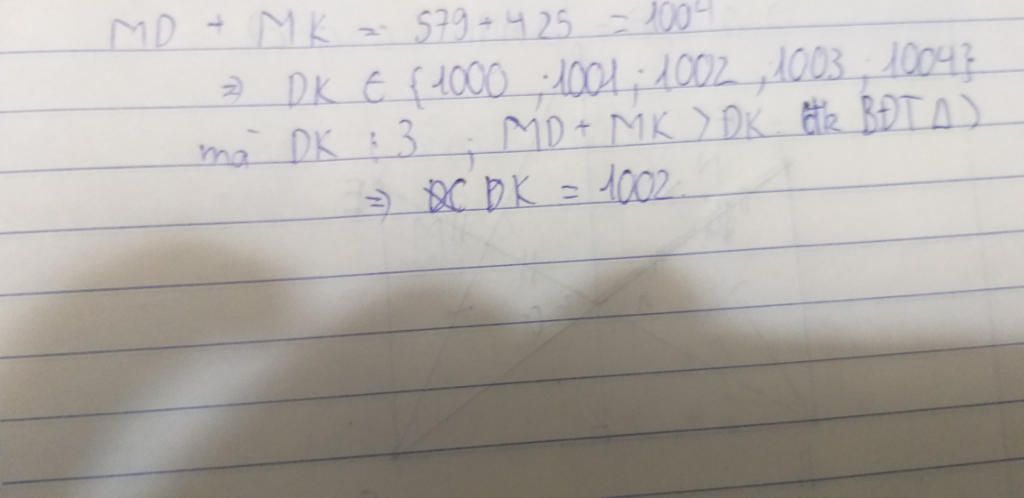 MD + MK = 579 + 425 = 1004
⇒ DK ∈ {1000 ; 1001 ; 1002 , 1003 ; 1004}
mà DK ⋮ 3 ; MD + MK > DK BĐT Δ)
⇒ DK = 1002.